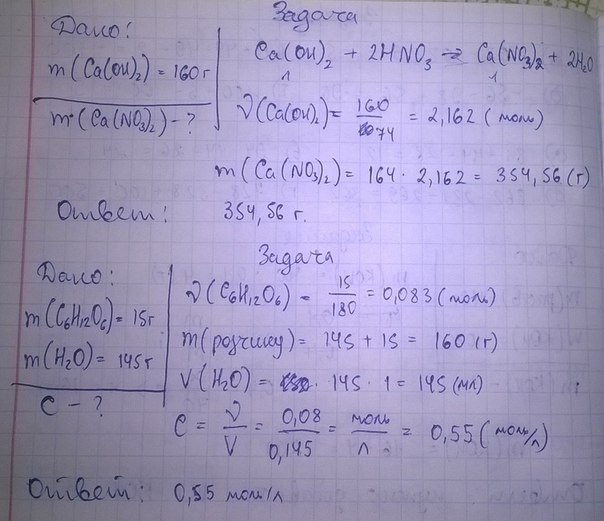 Задача
Дано:
m(Ca(OH)₂) = 160 г
m(Ca(NO₃)₂) - ?
Ca(OH)₂ + 2HNO₃ → Ca(NO₃)₂ + 2H₂O
1 1
ν(Ca(OH)₂) = 160/74 = 2,162 (моль)
m(Ca(NO₃)₂) = 164 · 2,162 = 354,56 (г)
Ответ: 354,56 г.
Задача
Дано:
m(C₆H₁₂O₆) = 15 г
m(H₂O) = 145 г
C - ?
ν(C₆H₁₂O₆) = 15/180 = 0,083 (моль)
m(розчину) = 145 + 15 = 160 (г)
V(H₂O) = · 145 · 1 = 145 (мл)
C = ν/V = 0,08/0,145 = моль/л = 0,55 (моль/л)
Ответ: 0,55 моль/л